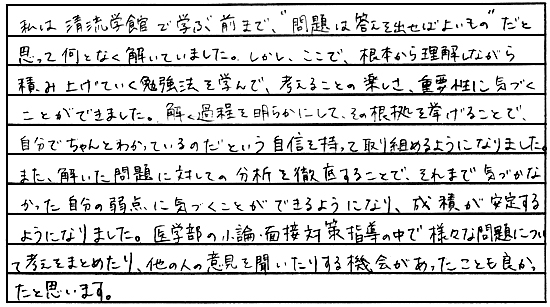 私は清流学館で学ぶ前まで、"問題は答えを出せばよいもの"だと
思って何となく解いていました。しかし、ここで、根本から理解しながら
積み上げていく勉強法を学んで、考えることの楽しさ、重要性に気づく
ことができました。解く過程を明らかにして、その根拠を挙げることで、
自分でちゃんとわかっているのだという自信を持って取り組めるようになりました。
また、解いた問題に対しての分析を徹底することで、それまで気づかな
かった自分の弱点に気づくことができるようになり、成積が安定する
ようになりました。医学部の小論・面接対策指導の中で様々な問題につい
て考えをまとめたり、他の人の意見を聞いたりする機会があったことも良かっ
たと思います。